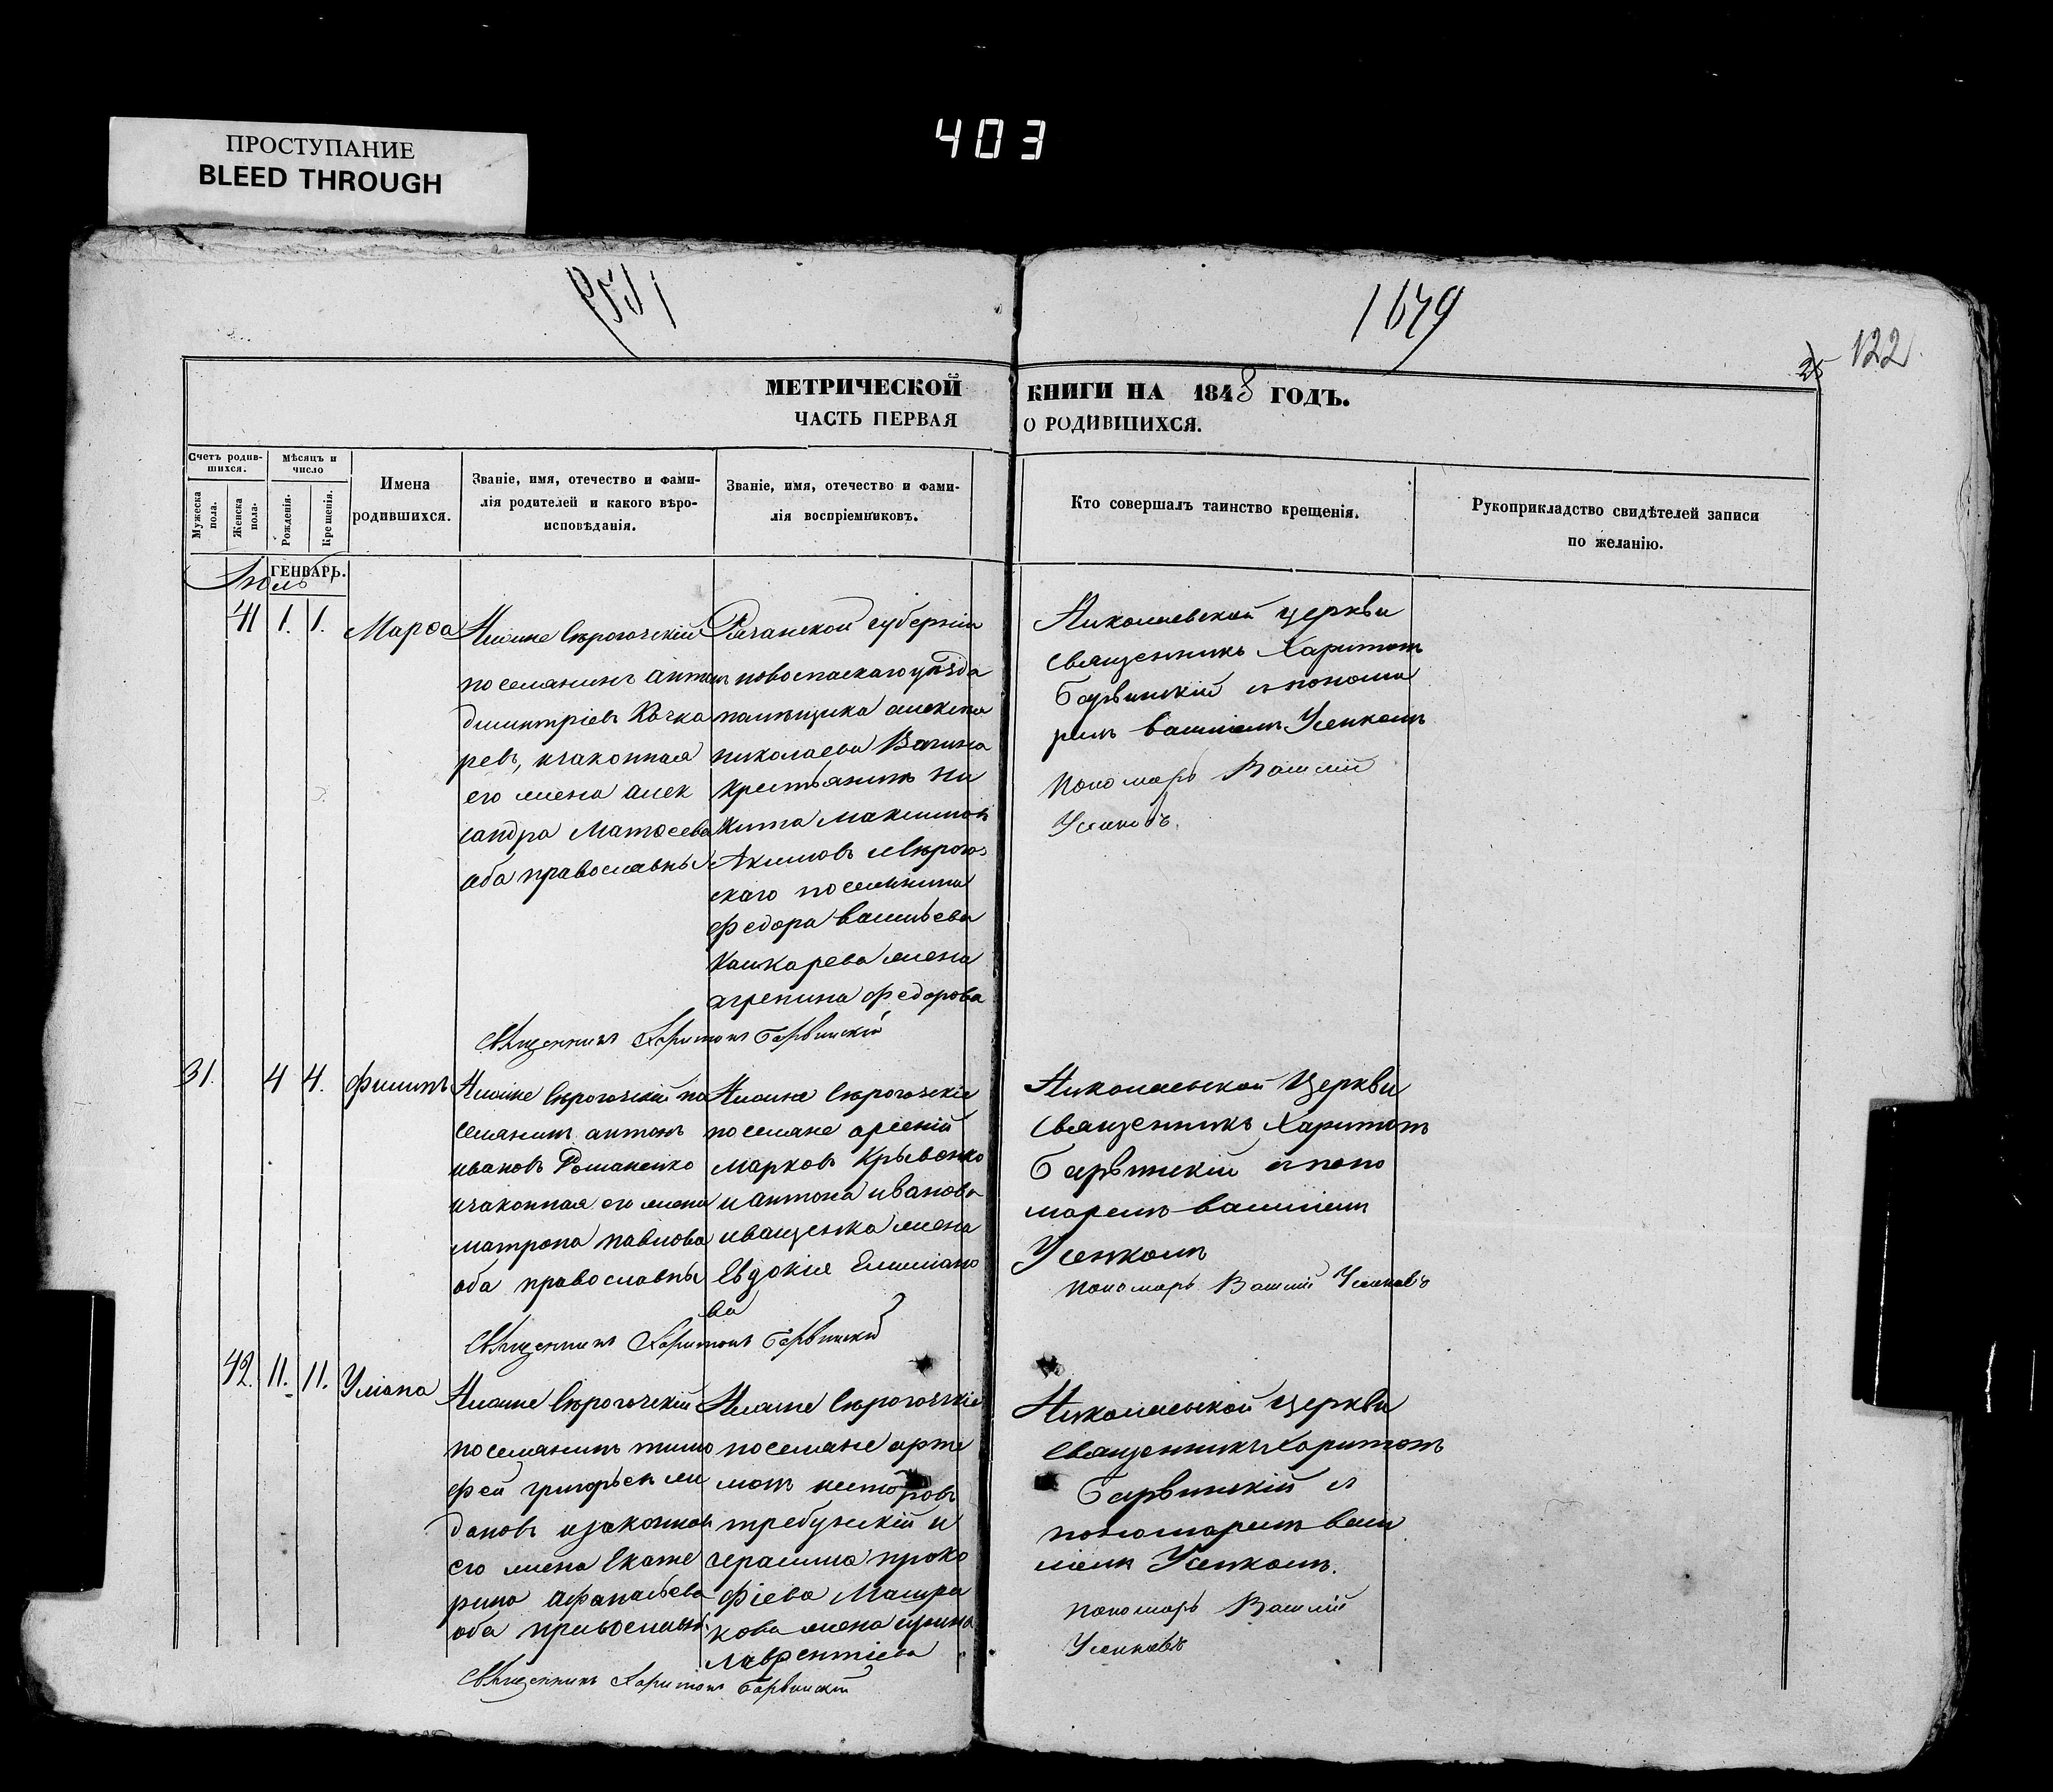 403
ПРОСТУПАНИЕ
BLEED THROUGH
1679
25
122
МЕТРИЧЕСКОЙ КНИГИ НА 1848 ГОДЪ.
ЧАСТЬ ПЕРВАЯ О РОДИВШИХСЯ.
Счетъ родив-
шихся.
Мужеска
пола.
Женска
пола.
Мѣсяцъ и
число
Рожденія.
Крещенія.
Имена
родившихся.
Званіе, имя, отечество и фами-
лія родителей и какого вѣро-
исповѣданія.
Званіе, имя, отечество и фами-
лія воспріемниковъ.
Кто совершалъ таинство крещенія.
Рукоприкладство свидѣтелей записи
по желанію.
ГЕНВАРЬ.
Июль
41 1. 1.
Марѳа
поселянинъ антон
димитріевъ Качка
ревъ, изаконная
его жена алек
сандра Матѳеева
оба православны
губерніи
новоспаскаго уѣзда
помѣщика
николаева
крестьянинъ Ни
кита максимов
Акимовъ
скаго поселянина
Федора васильева
Кашкарева жена
агрепина Федорова
Николаевской церкви
священникъ Харитонъ
Барвинскій и понома
ремъ василіемъ Усенкомъ
Пономарь Василій
Усенковъ.
Священникъ Харитонъ Барвинскій
31. 4 4.
Филипъ
по
селянинъ антонъ
ивановъ Романенко
изаконная его жена
матрона павлова
оба православны
поселяне арсеній
марковъ Крывонко
и антона иванова
иващенка жена
Евдокія Емиліано
ва
Николаевской Церкви
священникъ Харитонъ
Барвинскій и поно
маремъ василіемъ
Усенкомъ
Пономарь Василій Усенковъ
Священникъ Харитонъ Барвинскій
42. 11. 11.
Уліана
поселянинъ тимо
фей григорьевъ
дановъ изаконная
его жена Екате
рина афанасьева
оба православны
поселяне арте
монъ несторовъ
требужскій и
герасима проко
фіева
кова жена ирина
лаврентіева
Николаевской церкви
священникъ Харитонъ
Барвинскій и
пономаремъ васи
ліемъ Усенкомъ.
Пономарь Василій
Усенковъ
Священникъ Харитонъ Барвинскій